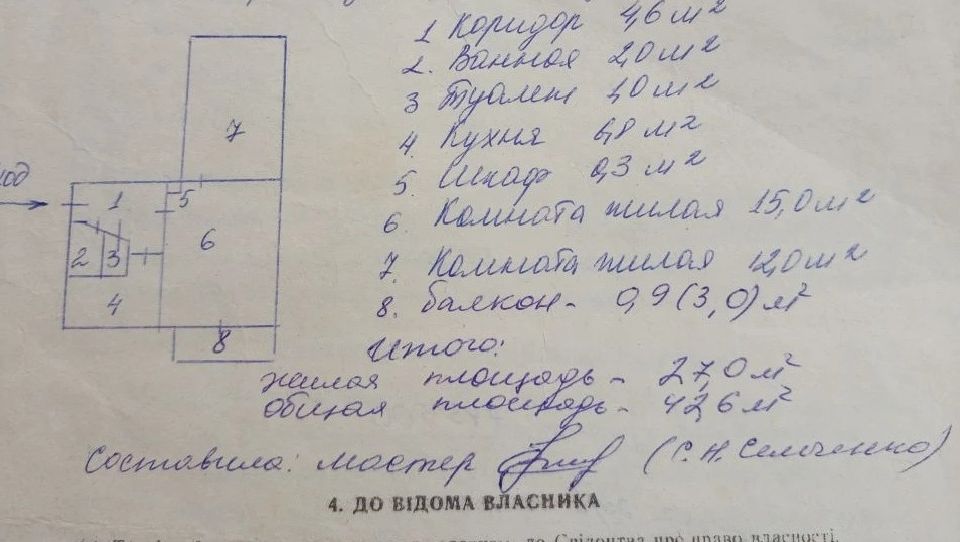 1 Коридор 4,6 м²
2. Ванная 2,0 м²
3 Туалет 1,0 м²
4. Кухня 6,8 м²
5. Шкаф 0,3 м²
6. Комната жилая 15,0 м²
7. Комната жилая 12,0 м²
8. балкон - 0,9 (3,0) м²
Итого:
жилая площадь - 27,0 м²
общая площадь - 42,6 м²
Составила: мастер (С.Н.
4. ДО ВІДОМА ВЛАСНИКА
до Свідоцтва про право власності.
7
1
5
2
3
6
4
8